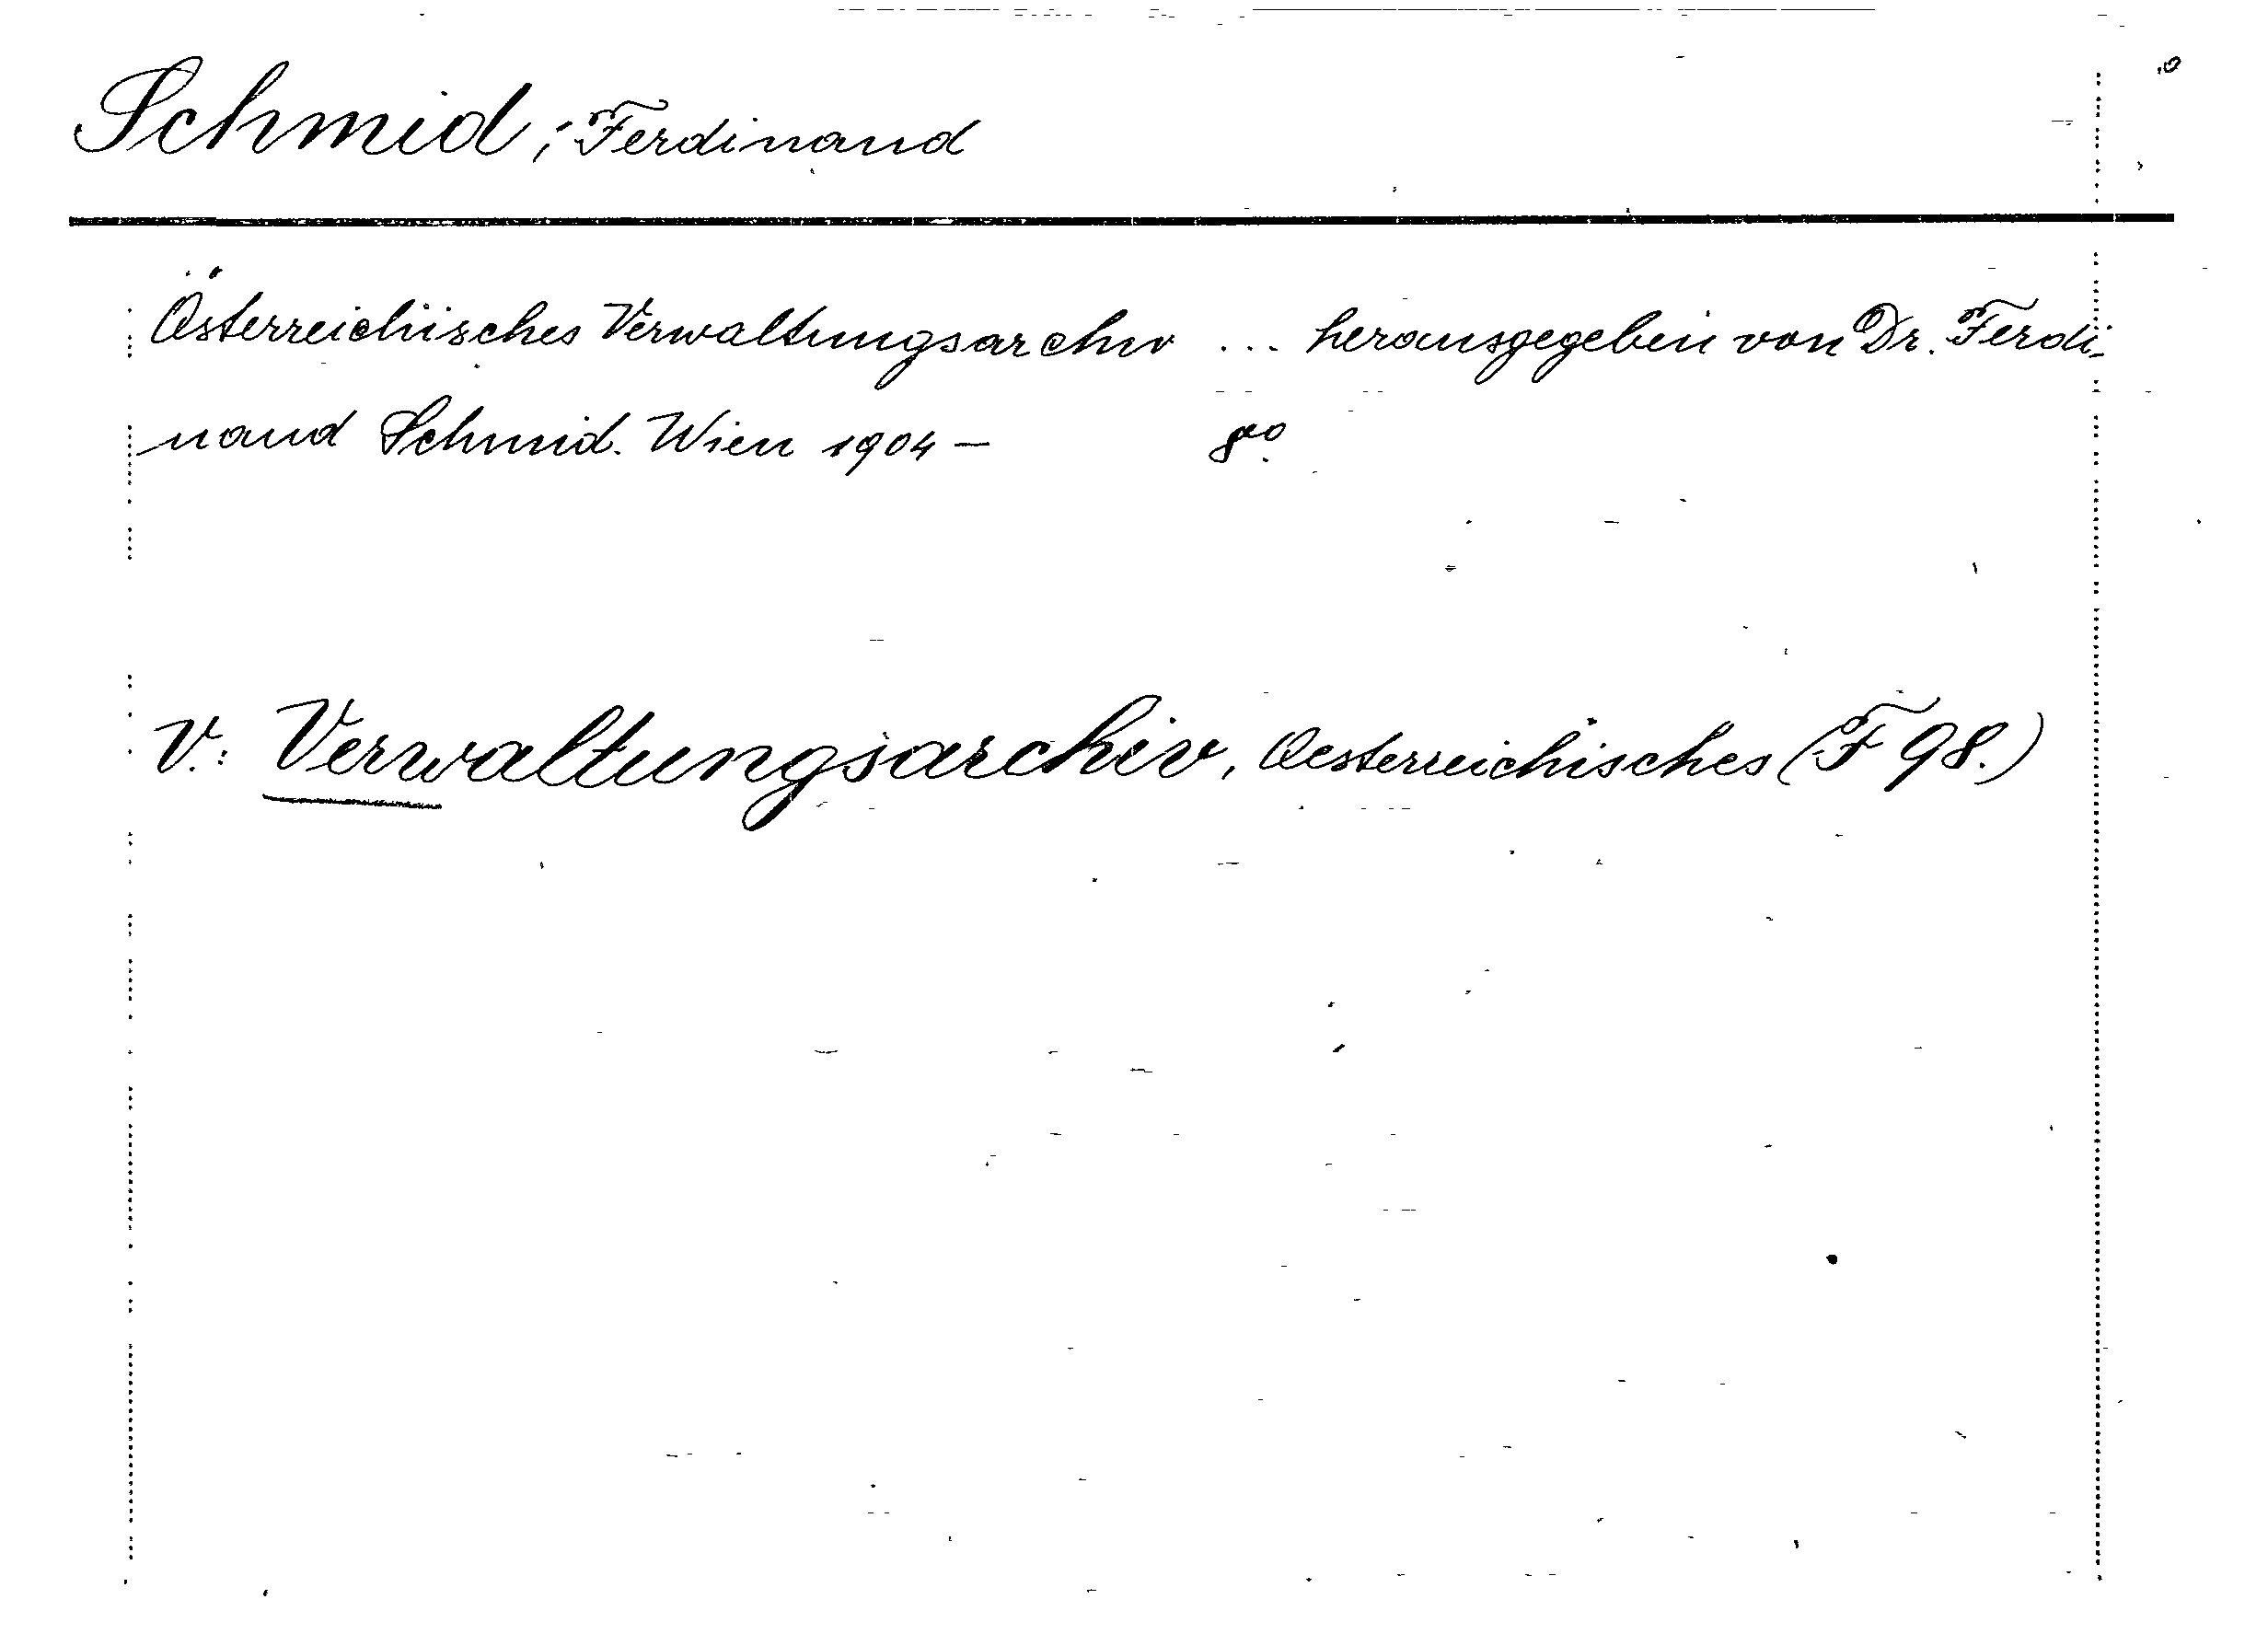 Schmid, Ferdinand
Österreichisches Verwaltungsarchiv ... herausgegeben von Dr. Ferdi-
nand Schmid. Wien 1904 — 8vo.
V.: Verwaltungsarchiv, Oesterreichisches (F 98.)